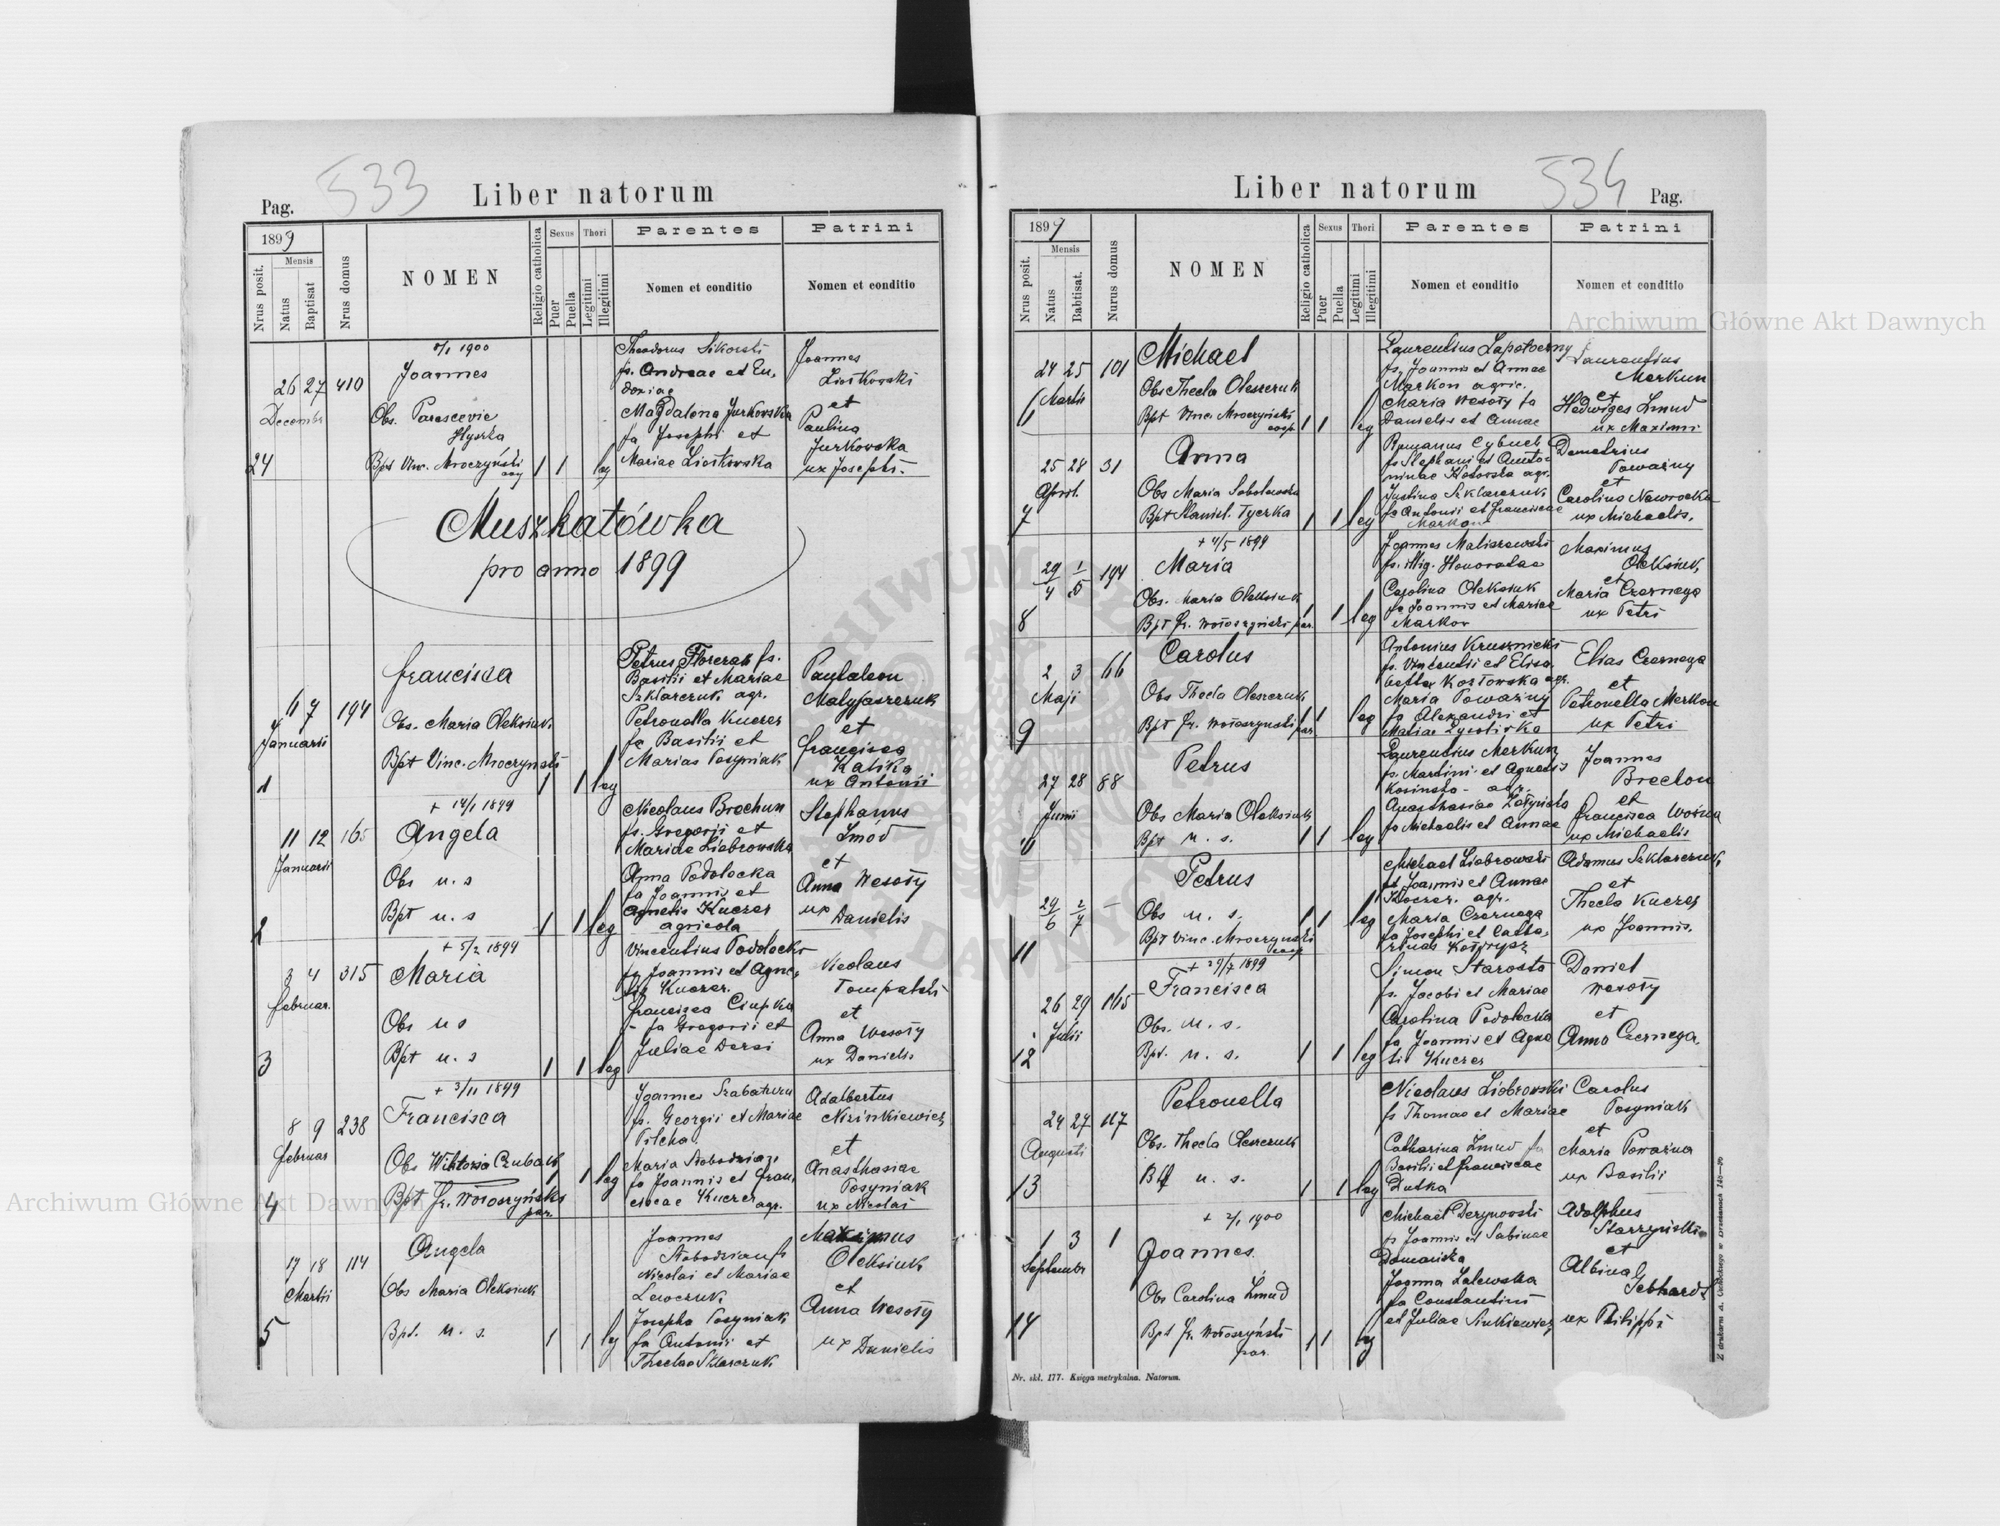 533
Pag.
Liber natorum
1899
Nrus posit.
Mensis
Natus
Baptisat
Nrus domus
NOMEN
Religio catholica
Sexus
Puer
Puella
Thori
Legitimi
Illegitimi
Parentes
Nomen et conditio
Patrini
Nomen et conditio
24
26 27 410
Decembr
1900
Joannes
Obs. Parascevie
Bpt Vinc. Mroczyński
1 1 leg
Theodorus Sikorski
fs. Andreae et Eu,
doxiae
Magdalena Jurkovska
fa Josephi et
Mariae Liotkovska
Joannes
Liotkovski
et
Paulina
Jurkovska
ux Josephi.
Muszkatówka
pro anno 1899
1
6 7 194
Januarii
Francisca
Obs. Maria Oleksiuk
Bpt Vinc. Mroczyński
1 1 leg
Petrus fs.
Basilii et Mariae
Szklarczuk agr.
Petronella Kuczer
fa Basilii et
Marias Posyniak
Pantaleon
et
Francisca
Kalika
ux Antonii
2
11 12 165
Januarii
+ 14/1 1899
Angela
Obs u. s
Bpt u. s
1 1 leg
Nicolaus Brechun
fs. Gregorii et
Mariae Liebrowska
Anna Podolocka
fa Joannis et
Agnetis Kuczer
agricola
Stephanus
Smód
et
Anna Wesoły
ux
Danielis
3
3 4 315
Februar.
+ 5/2 1899
Maria
Obs u s
Bpt u. s
1 1 leg
Vincentius Podolocki
fs Joannis et Agne,
tis Kuczer.
Francisca Ciupka
fa Gregorii et
Juliae Derei
Nicolaus
Tompalski
et
Anna Wesoły
ux Danielis
4
8 9 238
Februar
+ 3/11 1899
Francisca
Obs Wiktoria Czubach
Bpt fr. Wołoszyński
par.
1 leg
Joannes Szabatura
fs. Georgii et Mariae
Pilcha
Maria
fa Joannis et Fran,
ciscae Kuczer agr.
Adalbertus
et
Anasthasiae
Posyniak
ux Nicolai
5
17 18 114
Martii
Angela
Obs Maria Oleksiuk
Bpt. u. s.
1 1 leg
Joannes
Nicolai et Mariae
Lewczuk
Josepha Posyniak
fa Antonii et
Theclae Szklarczuk
Maximus
Oleksiuk
et
Anna Wesoły
ux Danielis
Liber natorum
534
Pag.
1899
Nrus posit.
Mensis
Natus
Babtisat.
Nurus domus
NOMEN
Religio catholica
Sexus
Puer
Puella
Thori
Legitimi
Illegitimi
Parentes
Nomen et conditio
Patrini
Nomen et conditio
6
24 25 101
Martii
Michael
Obs Thecla Oleszczuk
Bpt Vinc. Mroczyński
coop
1 1 leg
Laurentius
fs. Joannis et Annae
Markon agric.
Maria Wesoły fa
Danielis et Annae
Laurentius
Merkun
et
Hedwiges Smud
ux Maximi
7
25 28 31
April.
Anna
Obs Maria Sobolewska
Bpt Stanisl. Tyczka
1 1 leg
Romanus Cybuch
fs Stephani et Anto,
ninae Kotovska agr.
Justina Szklarczuk
fa Antonii et Franciscae
Markon
Demetrius
Poważny
et
Carolina Nawrocka
ux Michaelis.
8
29/4 1/5 194
+ 4/5 1899
Maria
Obs. Maria Oleksiuk
Bpt fr. Wołoszyński par.
1 1 leg
Joannes Maliszewski
fs. illig. Honoratae
Carolina Oleksiuk
fa Joannis et Mariae
Markov
Maximus
Oleksiuk,
et
Maria Czernega
ux Petri
9
2 3 66
Maji
Carolus
Obs Thecla Oleszczuk
Bpt fr. Wołoszyński par.
1 1 leg
Antonius Krusznicki
fs. Vincentii et Elisa,
bethae Kozłowska agr.
Maria Poważny
fa Alexandri et
Elias Czernega
et
Petronella Merkon
ux Petri
10
27 28 88
Junii
Petrus
Obs Maria Oleksiuk
Bpt u. s.
1 1 leg
Laurentius Merkun
fs. Martini et Agnetis
Kosinska - agr.
fa Michaelis et Annae
Joannes
Breclon
et
Francisca Woźna
ux Michaelis
11
29/6 2/7 –
Petrus
Obs u. s.
Bpt Vinc. Mroczyński
coop
1 1 leg
Michael Liebrowski
fs Joannis et Annae
Kuczer. agr.
Maria Czernega
fa Josephi et Catha,
rinae
Adamus Szklarczuk,
et
Thecla Kuczer
ux Joannis.
12
26 29 165
Julii
+ 29/7 1899
Francisca
Obs. u. s.
Bpt. u. s.
1 1 leg
Simon Starosta
fs. Jacobi et Mariae
Carolina Podolocka
fa Joannis et Agne
tis Kuczer
Daniel
Wesoły
et
Anna Czernega
13
24 27 117
Augusti
Petronella
Obs. Thecla Oleszczuk
Bpt u. s.
1 1 leg
Nicolaus Liebrowski
fs Thomae et Mariae
Catharina Smud fa
Basilii et Franciscae
Dutka
Carolus
Posyniak
et
Maria Poważna
ux Basilii
14
1 3 1
Septembr
+ 2/1 1900
Joannes.
Obs Carolina Smud
Bpt fr. Wołoszyński
par.
1 1 leg
Michael Derynovski
fs Joannis et Sabinae
Domańska
Joanna Zalewska
fa Constantini
et Juliae Sinkiewicz
Adolphus
Starzyński
et
Albina
Gebhardt
ux Philippi
Nr. skl. 177. Księga metrykalna. Natorum.
Archiwum Główne Akt Dawnych
Archiwum Główne Akt Dawnych